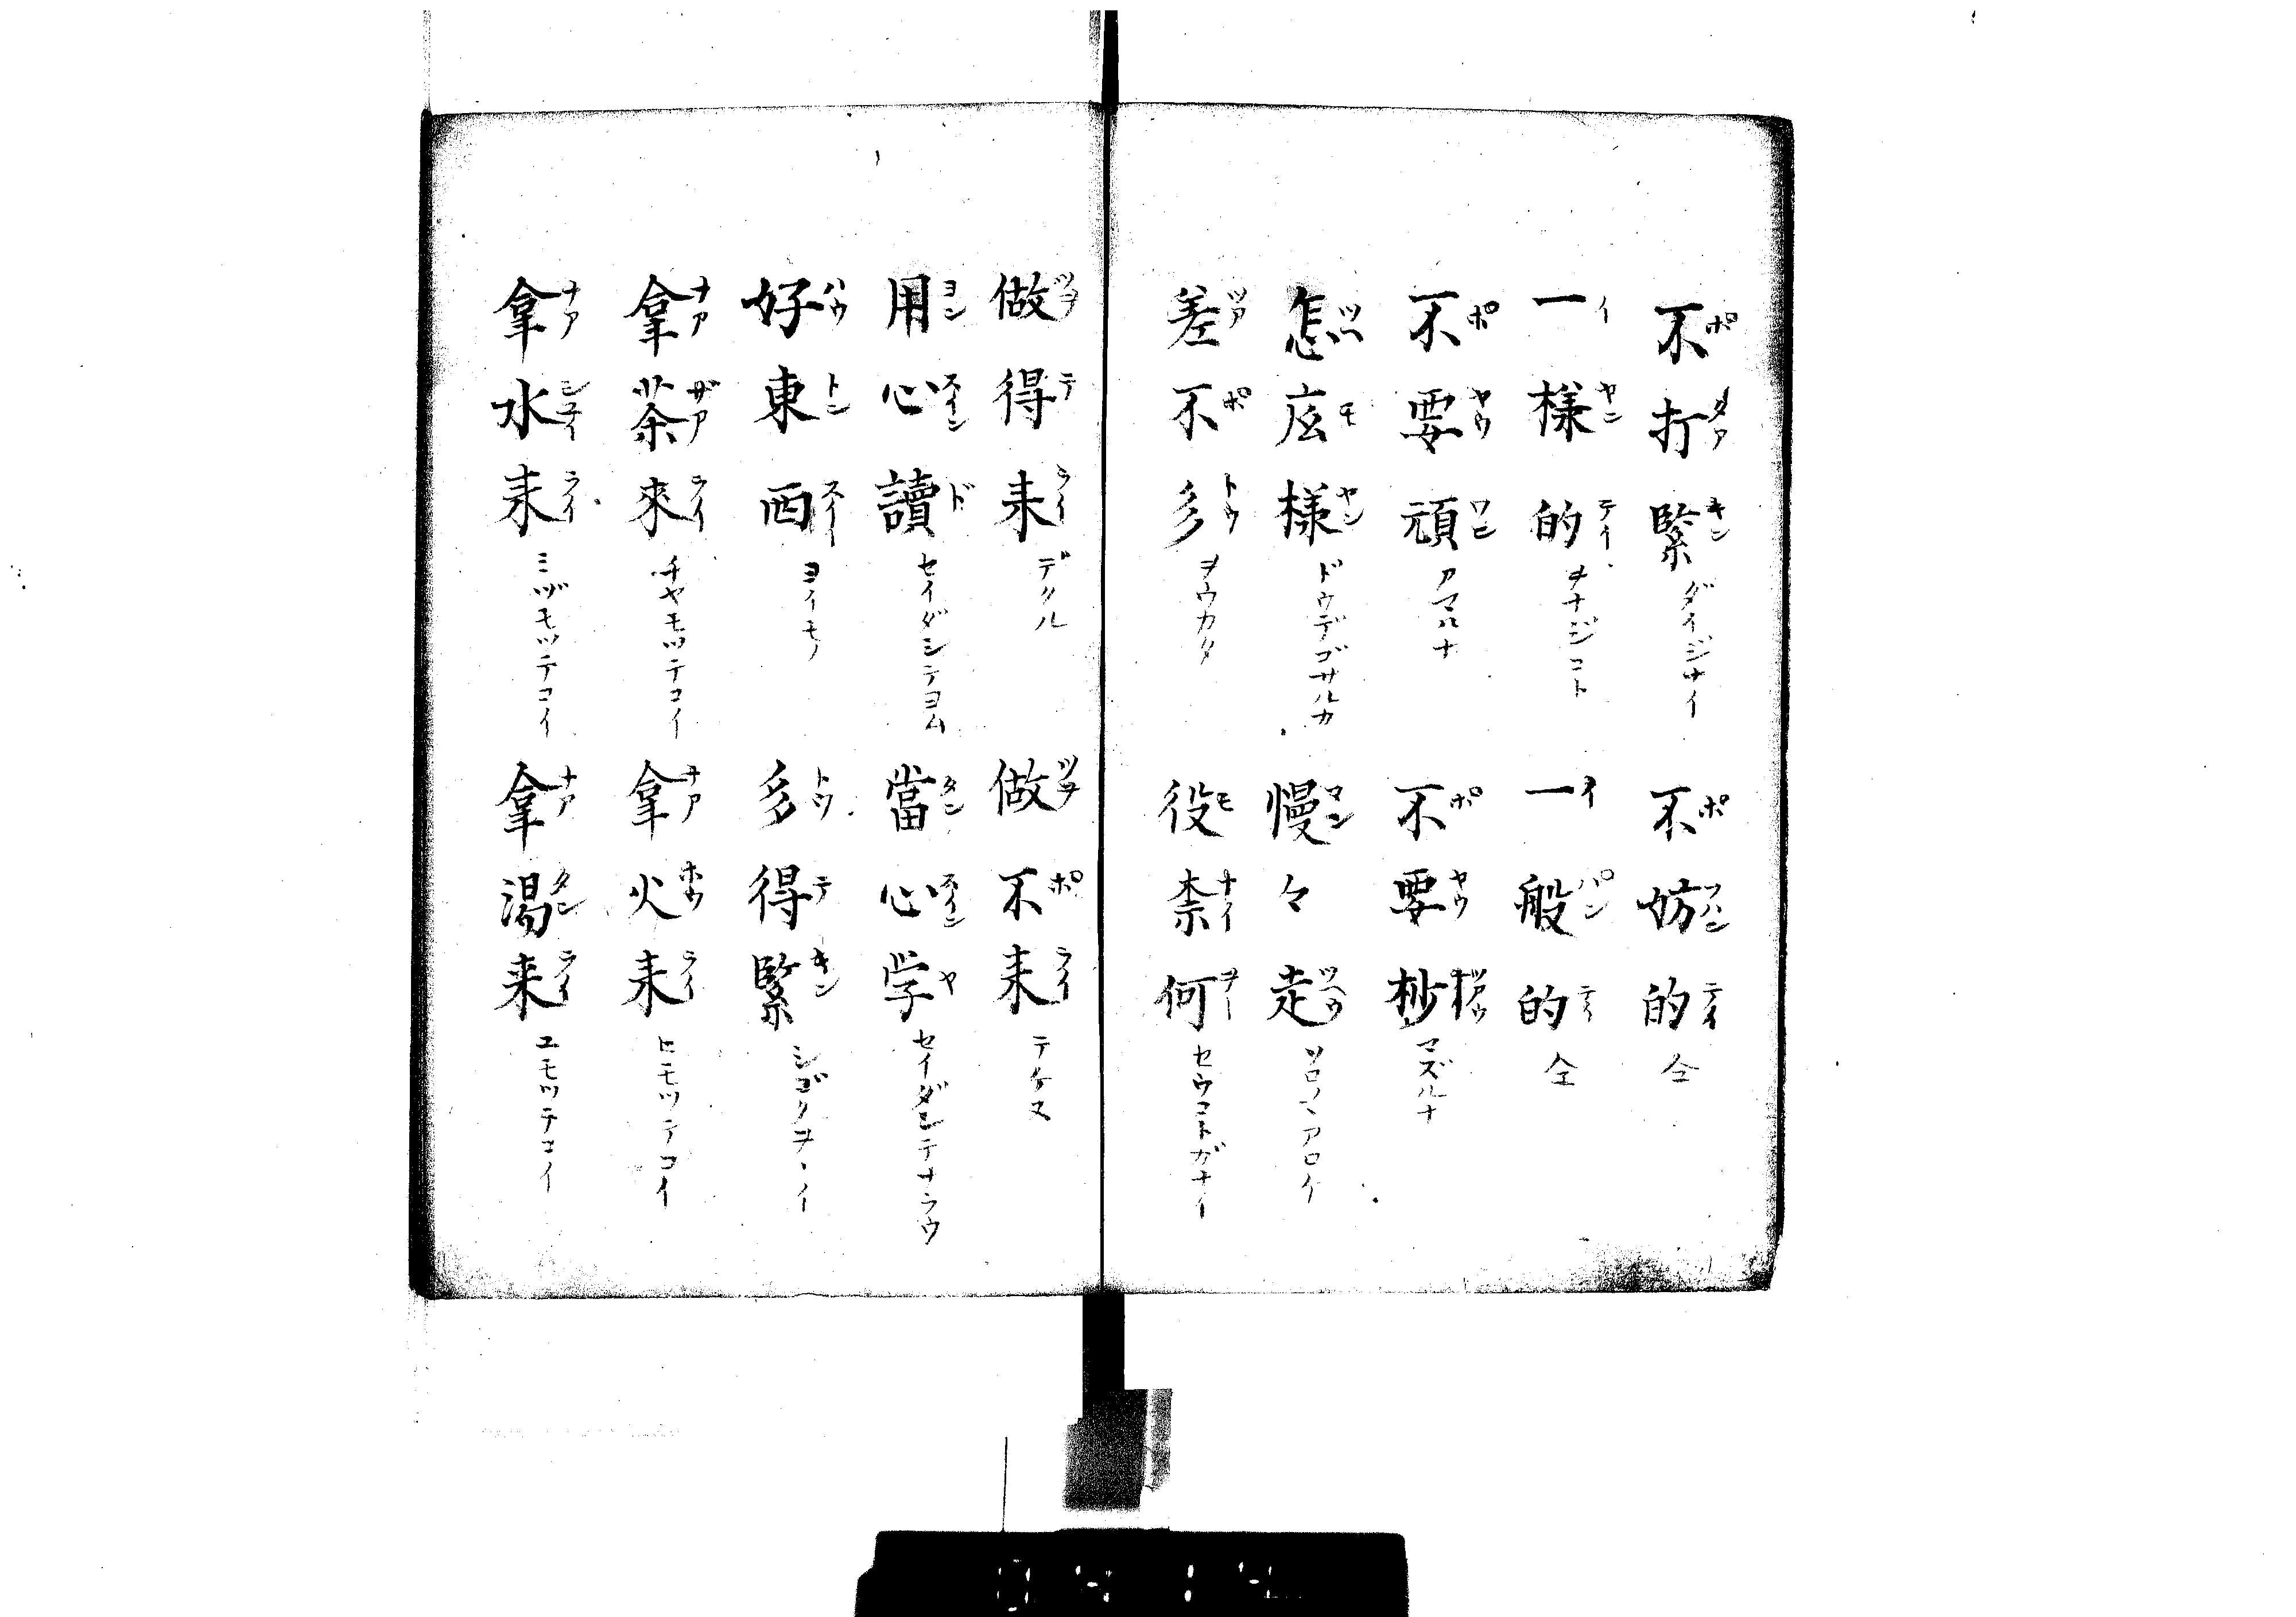 不打緊 ダイジナイ 不妨的 仝
一樣的 ヲナジコト 一般的 仝
不要頑 アマルナ 不要杪 マズルナ
怎庅樣 ドウデゴサルカ 慢々走 ソロ〳〵アロケ
差不多 ヲウカタ 役柰何 セウコトガナイ
做得来 デクル 做不来 テケヌ
用心讀 セイダシテヨム 當心学 セイダシテナラウ
好東西 ヨイモノ 多得緊 シゴクヲヽイ
拿茶來 チヤモツテコイ 拿火来 ヒモツテコイ
拿水来 ミヅモツテコイ 拿湯来 ユモツテコイ